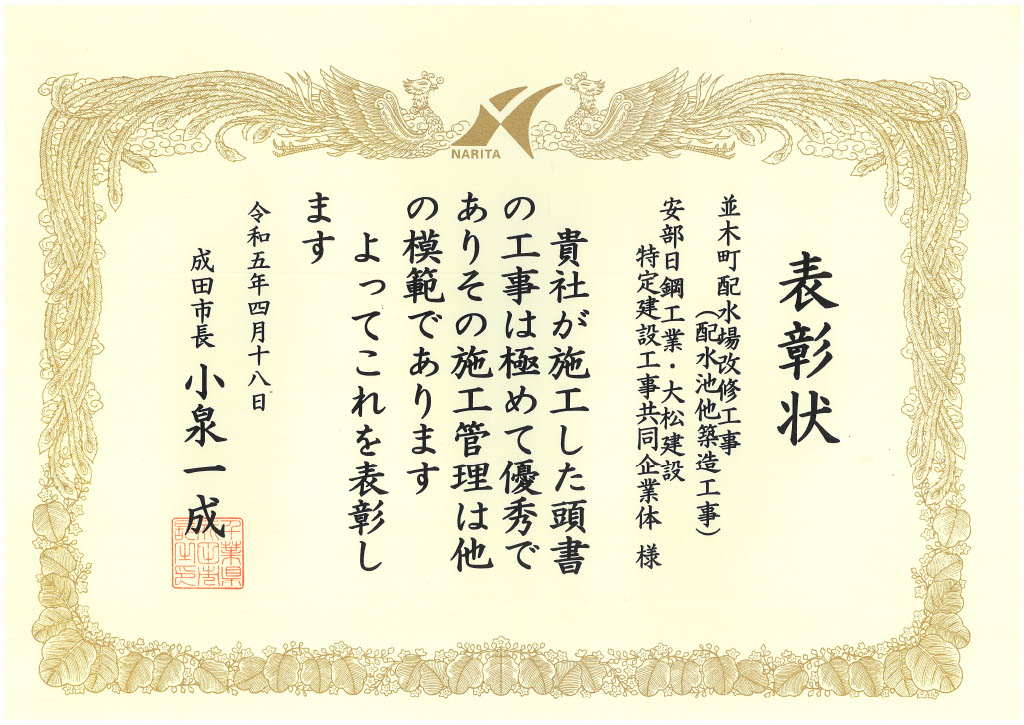 NARITA
表彰状
並木町配水場改修工事
(配水池他築造工事)
安部日鋼工業・大松建設
特定建設工事共同企業体 様
貴社が施工した頭書
の工事は極めて優秀で
ありその施工管理は他
の模範であります
よってこれを表彰し
ます
令和五年四月十八日
成田市長 小泉一成